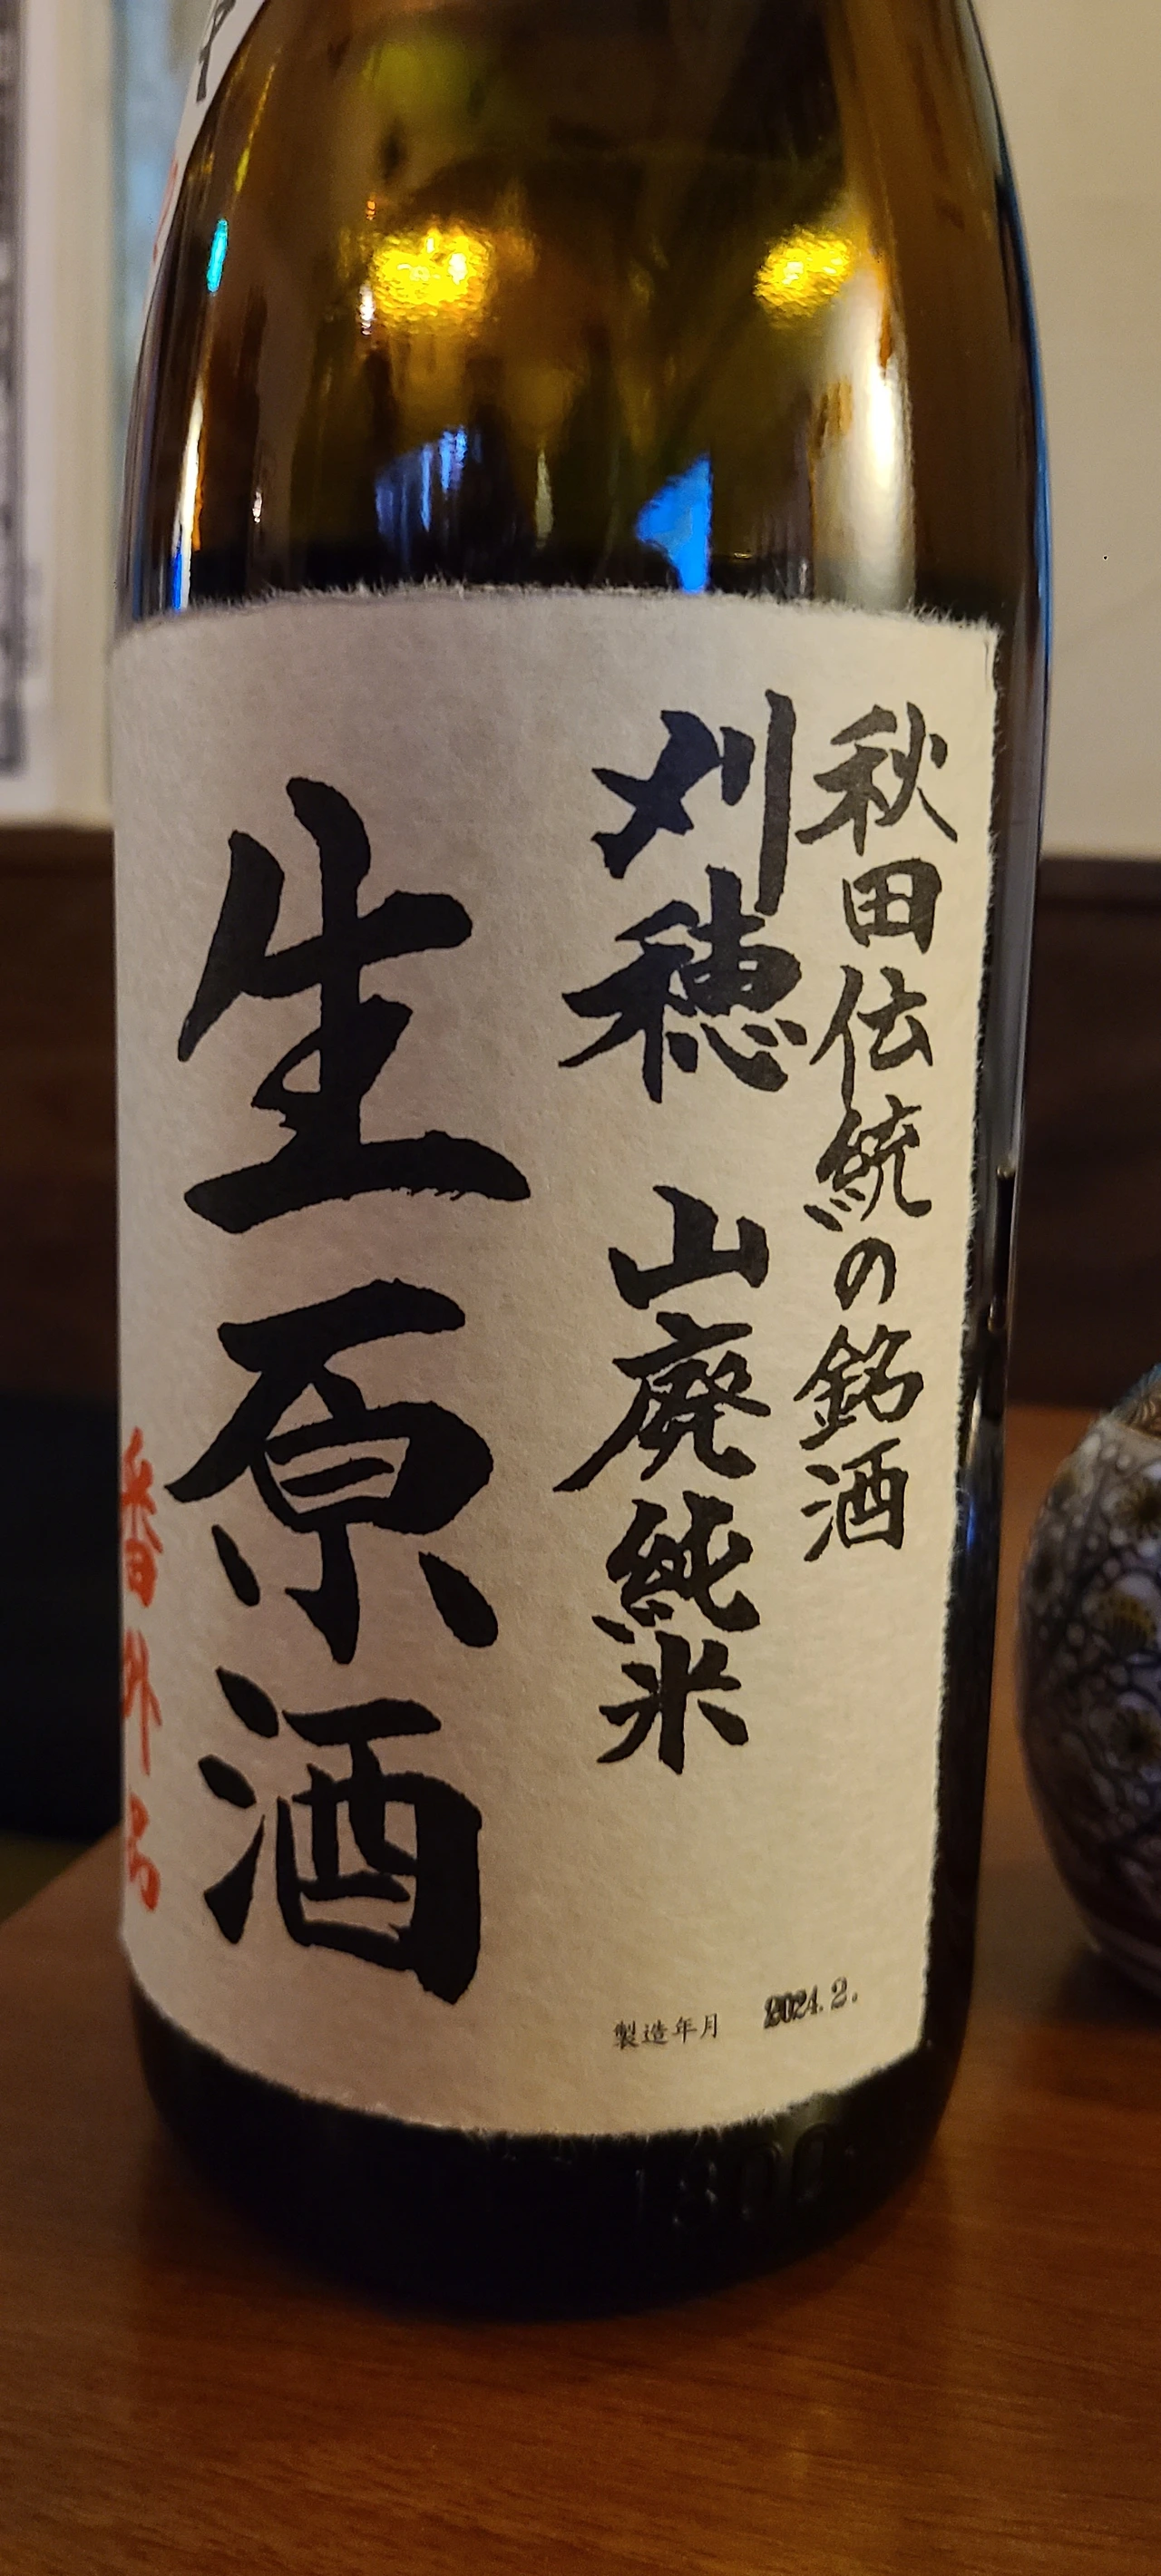 秋田伝統の銘酒
刈穂 山廃純米
生原酒
番外品
製造年月 2024.2.